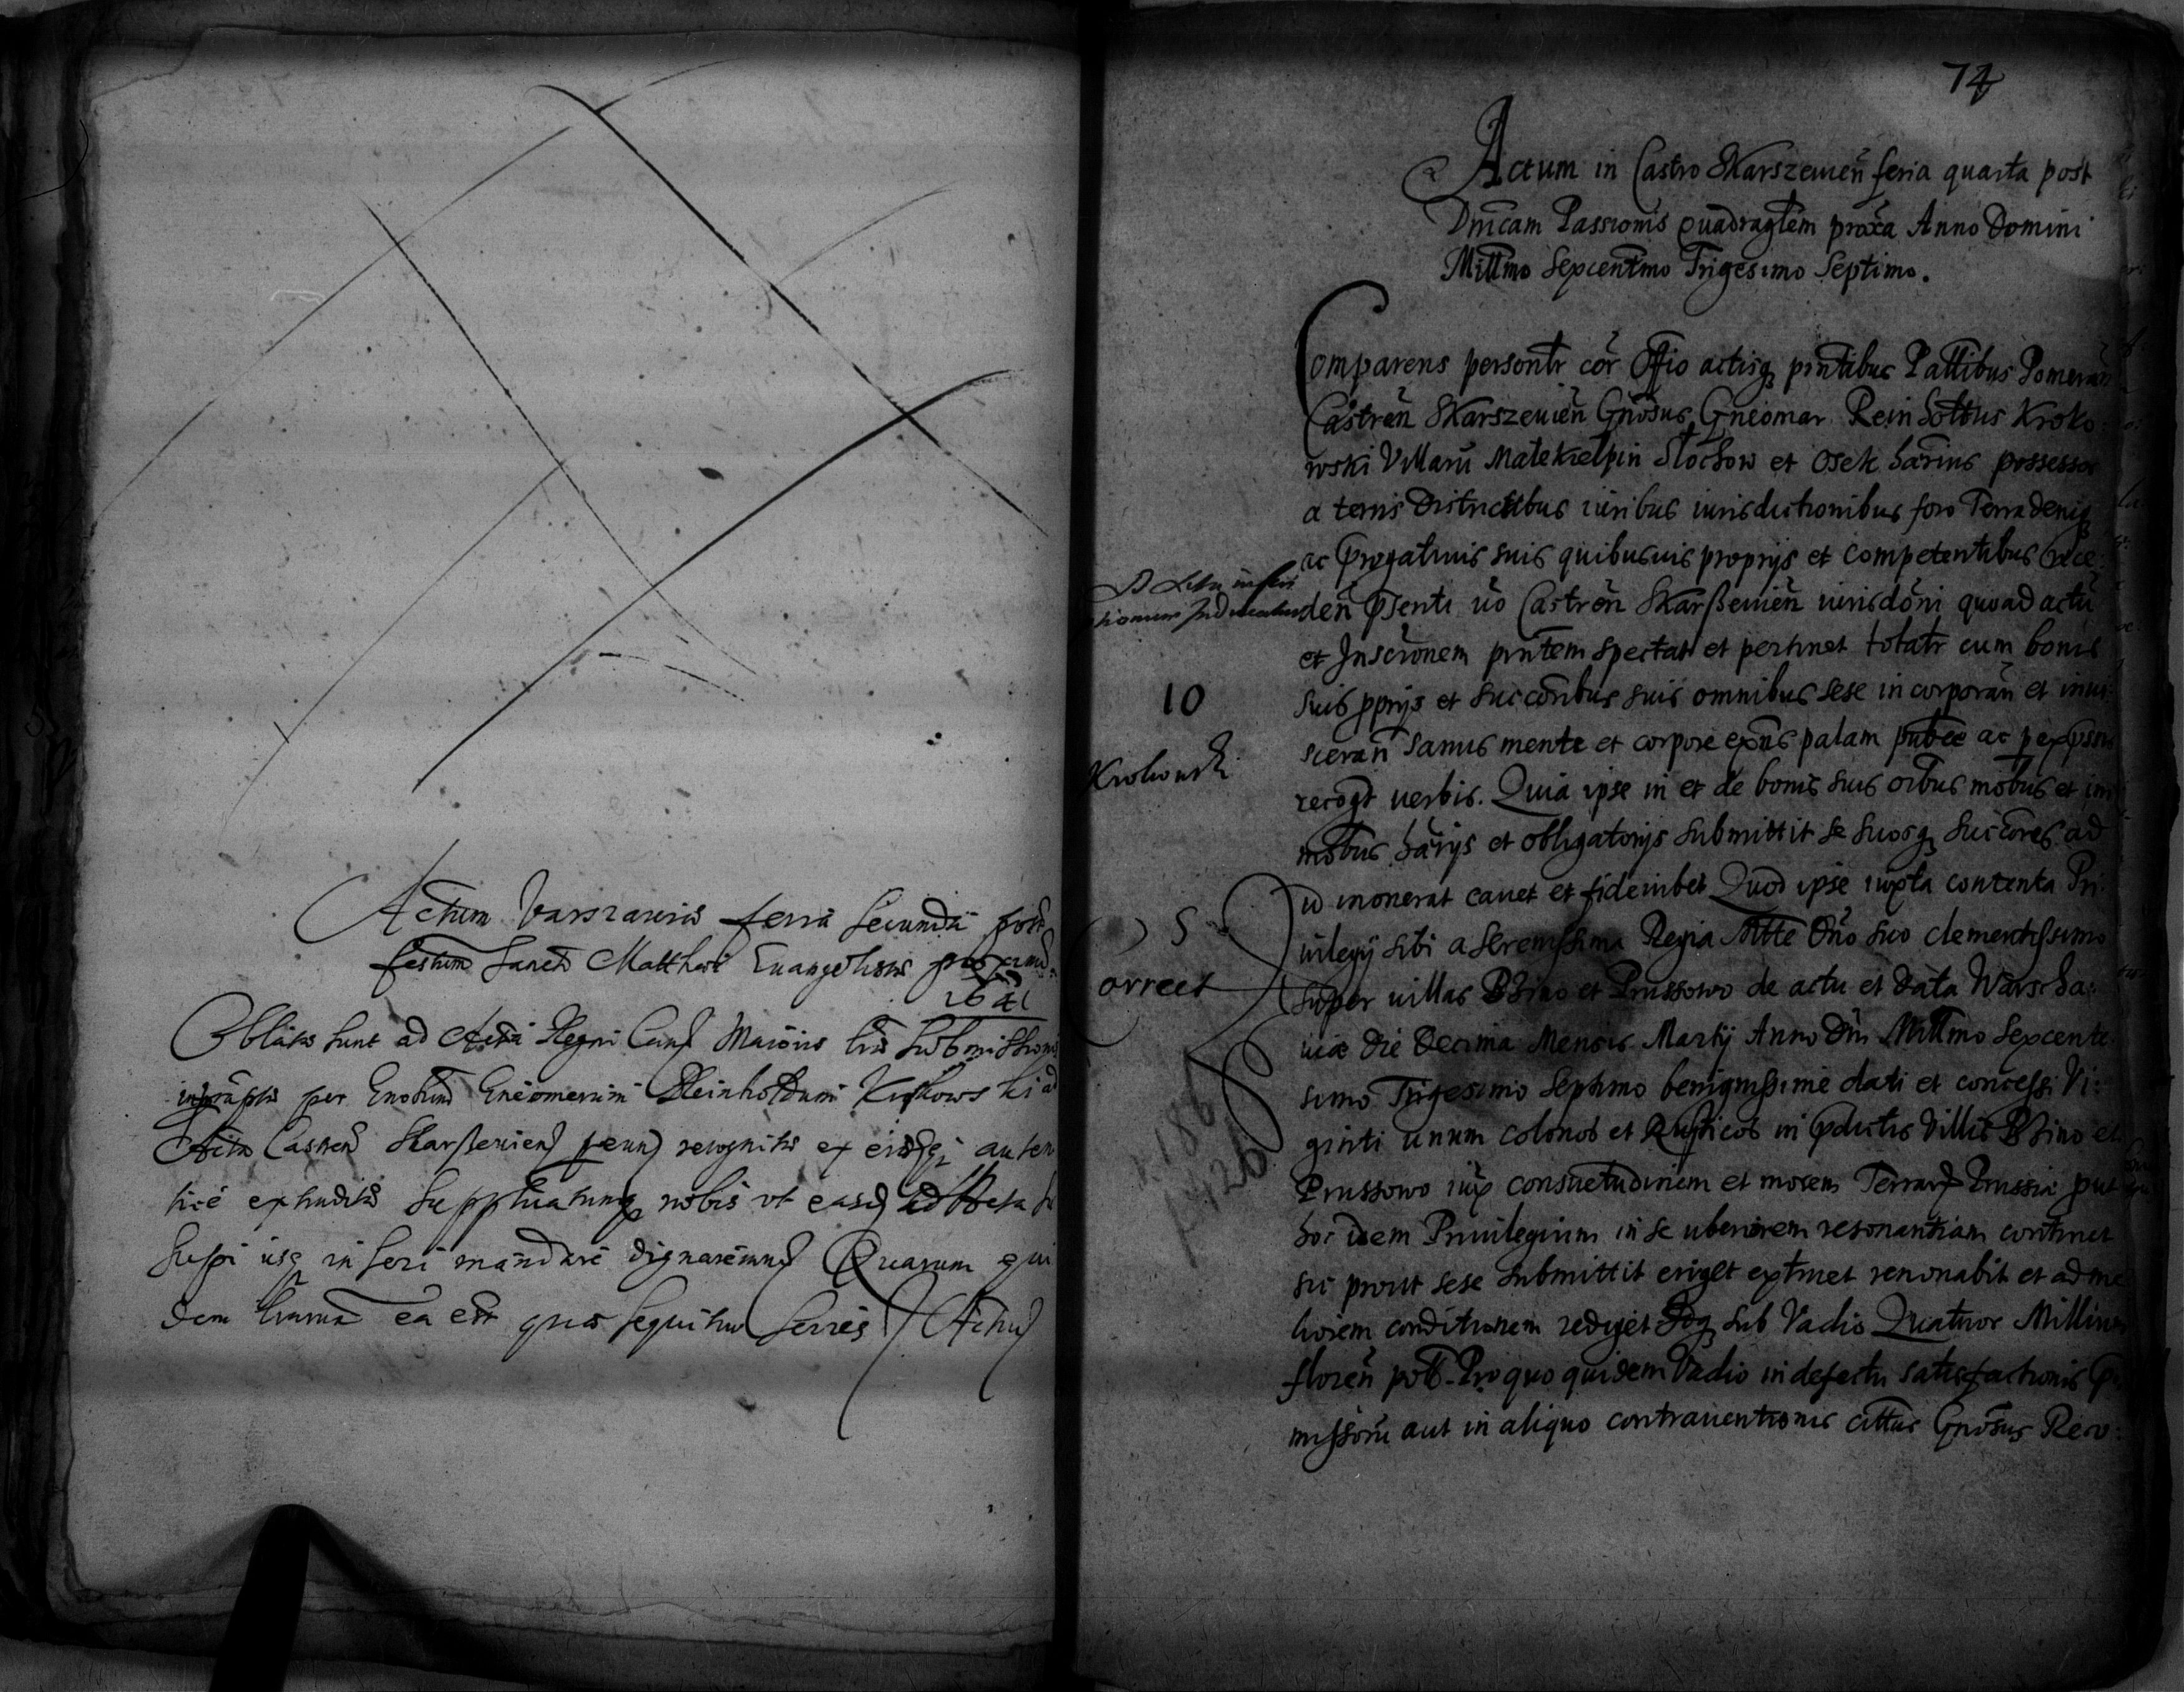 Actum Varszaviae feria Secunda post
festum Sancti Matthaei Evangelistae proximo
1641
Oblatae sunt ad Acta Regni Canc Maioris lrae Submissionis
per Gnosum Gneomerum Reinholdum Krokowski ad
Acta Castren Skarszewien recognitae ex eisdq auten
tice extraditae Supplicatumq nobis ut easd ad Acta
Suscipi usq inseri mandare dignaremur Quarum qui
dem lrarum ea est quae sequitur series Actum
74
Actum in Castro Skarszewien feria quarta post
Dnicam Passionis quadragtem proxa Anno Domini
Millmo Sexcentmo Trigesimo Septimo.
Comparens personlr cor Offio actisq pntibus Pallibus Pomeran
Castren Skarszeuien Gnosus Gneomar Reinholdus Kroko
wski Villaru Malekielpin Slochow et Osek harius possessor
a terris Districtibus iuribus iurisdictionibus foro Terra deniq
ac Prrogatiuis suis quibusuis proprijs et competentibus rece
den Psenti uo Castren Skarßeuien iurisdoni quoad actu
et Inscronem pntem spectat et pertinet totalr cum bonis
suis pprijs et succoribus suis omnibus sese incorporan et inui
10
sceran sanus mente et corpore exns palam publce ac p expssa
Krokowski
recogt uerbis. Quia ipse in et de bonis suis oibus mobus et im
mobus harijs et obligatorijs submittit se suosq succores ad
id inonerat cauet et fideiubet Quod ipse iuxta contenta Pri
S
uilegij sibi a Serenissima Regia Mtte Dno suo clementissimo
orrect
super uillas Bzino et Prussowo de actu et data Warscha:
uiae die Decima Mensis Martij Anno Dni Millmo Sexcente
simo Trigesimo Septimo benignissime dati et concessi Vi:
ginti unum colonos et Rusticos in Pdictis Villis Bzino et
Prussowo iux consuetudinem et morem Terrar Prussiae put
hoc idem Priuilegium in se uberiorem resonantiam continet
sic prout sese submittit eriget extruet renouabit et ad me
liorem conditionem rediget Idq sub Vadio Quatuor Millium
floren poll. Pro quo quidem Vadio in defectu satisfactionis P
missoru aut in aliquo contrauentionis cittus Gnosus Reco: